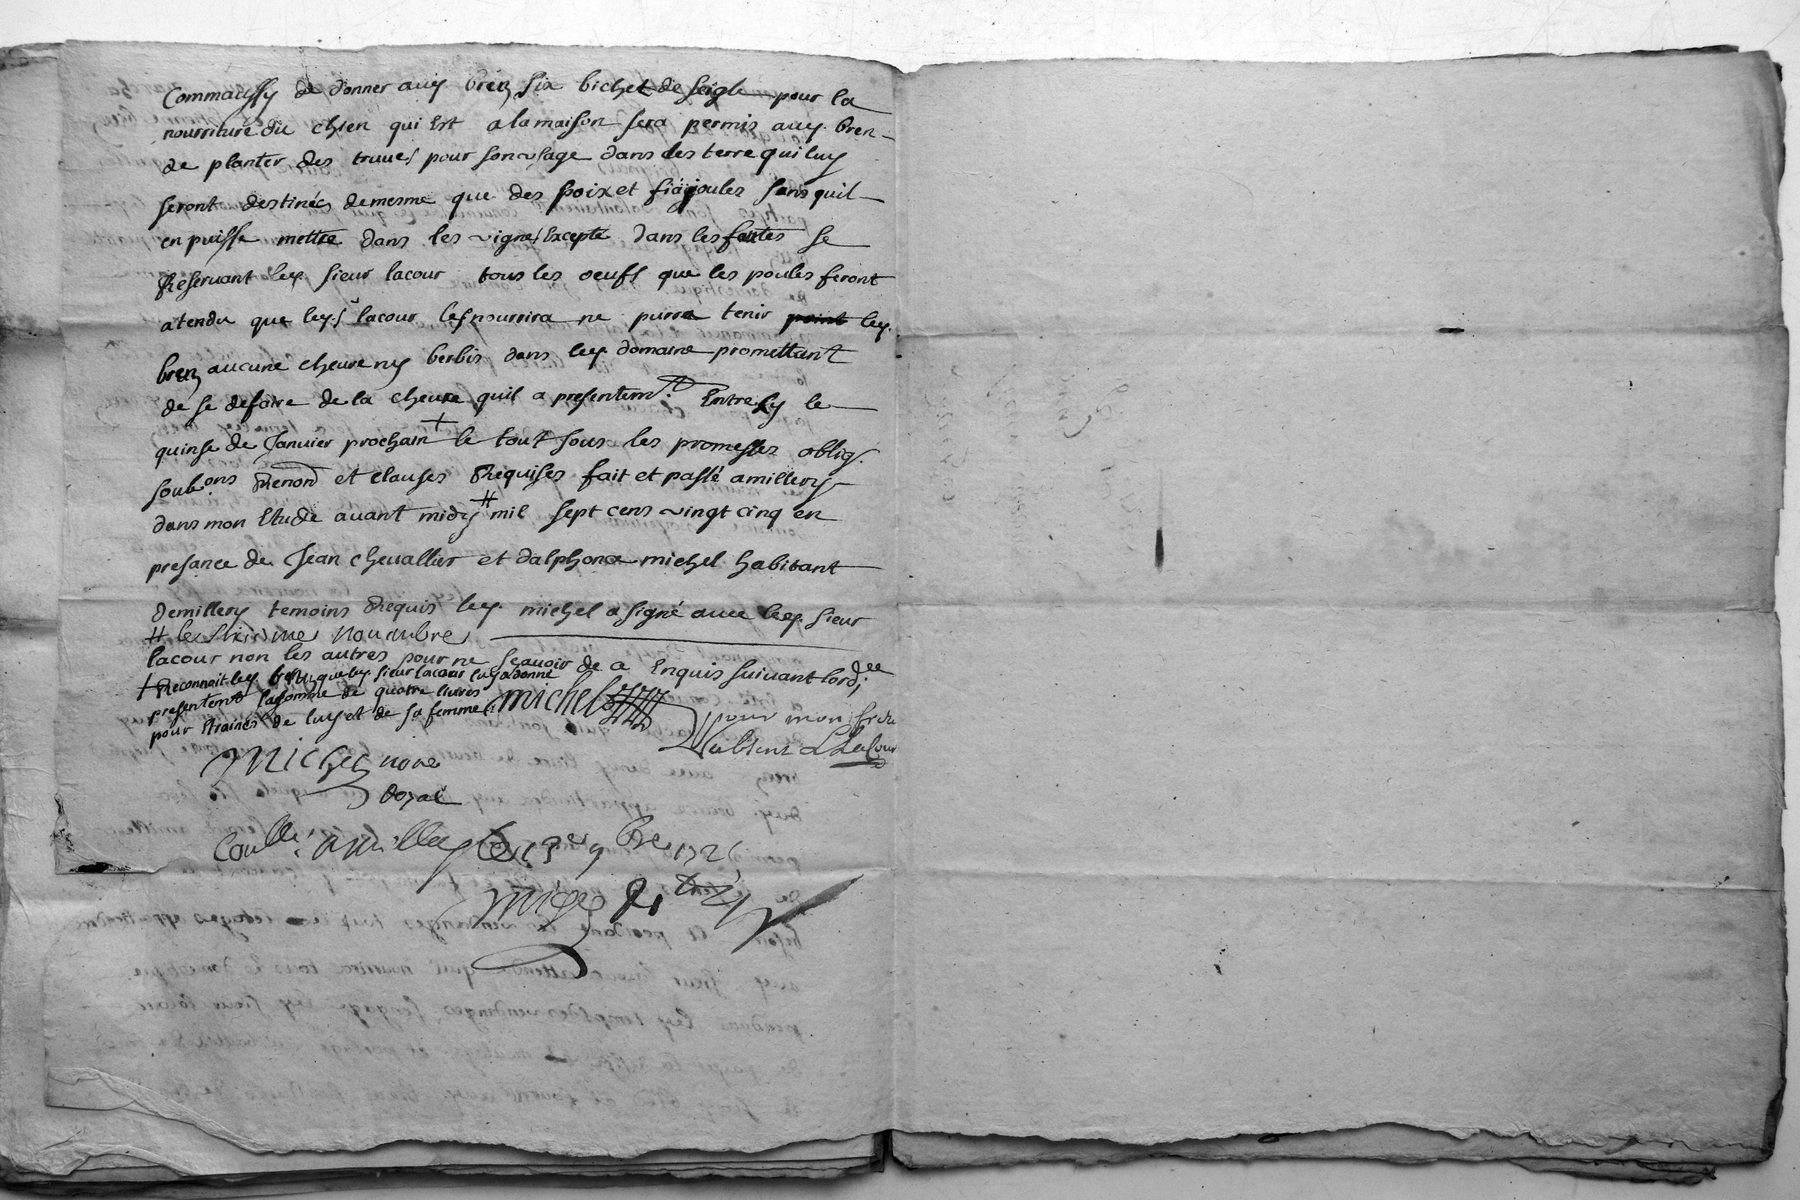 Commaussy de donner auy. bren six bichet de seigle pour la
nourriture du chien qui Est a la maison sera permis auy. bren
de planter des truues pour son usage dans des terre qui luy
seront destinés demesme que des poix et fiajoules sans quil
en puisse mettre dans les vignes Excepté dans les
se
Reseruant ley. sieur lacour tous les oeufs que les poules feront
atendu que ley. s lacour les nourrira ne purra tenir point ley.
bren aucune cheure ny berbis dans ley. domaine promettant
de se defaire de la cheure quil a presentem. Entre sy le
quinse de Januier prochain + le tout sous les promesses oblig.
soub.ons Renond et Clauses Requises fait et passé amillery
dans mon Etude auant midy # mil sept cens vingt cinq en
presance de Jean cheuallier et dalphonce michel habitant
demillery temoins Requis ley. michel a signé auec ley. sieur
# le sixiesme nouembre
lacour non les autres pour ne sçauoir de ce Enquis suiuant lord.ce
+ Reconnoit ley. bren que ley. sieur lacour luy a donné
presentemt la somme de quatre liures
pour Etraines de luy et de sa femme
michel
pour mon frere
absent Lacour
michel nore
Royal
Coullé a millery le 13e 9bre 1725